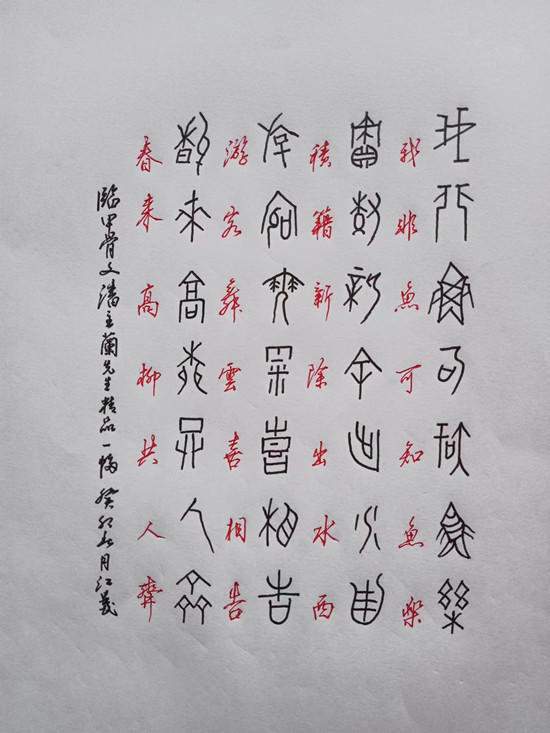 我非魚可知魚樂
積籍新除出水西
游客舞雲喜相告
春来高柳共人齊
臨甲骨文潘主蘭先生精品一幅癸卯月江